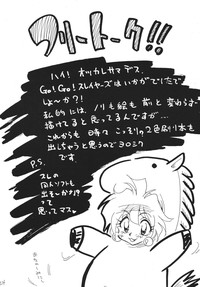 フリートーク!!
ハイ! オツカレサマデス。
Go!Go!スレイヤーズはいかがでしたで
しょ〜か?
私的には ノリも絵も 前と 変わらず…
描けてると 思ってるんですが…
これからも 時々 こっそり2色刷り本を
出しちゃうと思うのでヨロシク
です
P.S.
スレの
同人ソフト
も
出そ〜か?!
って
思ってマス